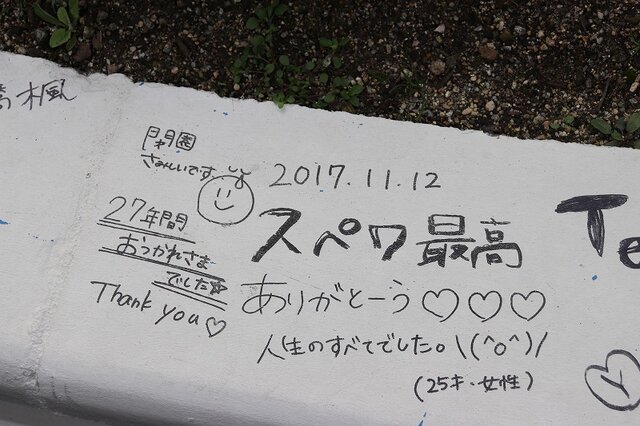 閉園
さみしいです
27年間
おつかれさま
でした
Thank you♡
2017.11.12
スペワ最高
ありがとーう♡♡♡
人生のすべてでした。\(^o^)/
(25才・女性)
Te